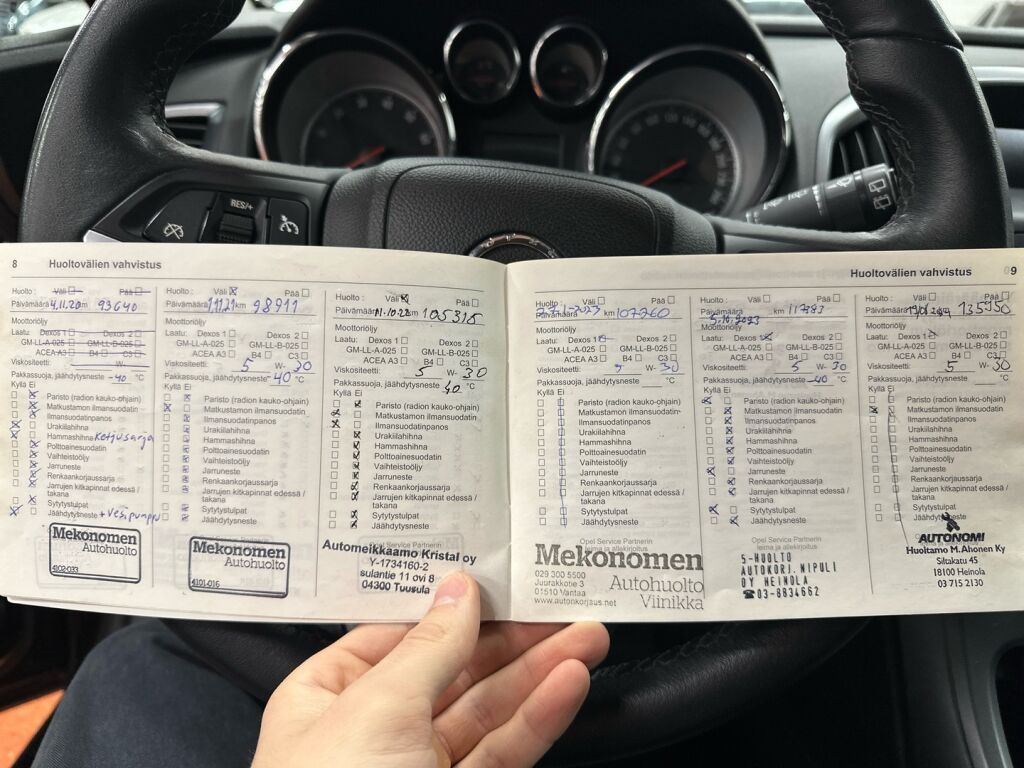 RES/+
8 Huoltovälien vahvistus
Huolto: Väli Pää
Päivämäärä 4.11.20 km 93640
Moottoriöljy
Laatu: Dexos 1 Dexos 2
GM-LL-A-025 GM-LL-B-025
ACEA A3 B4 C3
Viskositeetti: W-
Pakkassuoja, jäähdytysneste -40 °C
Kyllä Ei
Paristo (radion kauko-ohjain)
Matkustamon ilmansuodatin
Ilmansuodatinpanos
Urakiilahihna
Hammashihna Ketjusarja
Polttoainesuodatin
Vaihteistoöljy
Jarruneste
Renkaankorjaussarja
Jarrujen kitkapinnat edessä /
takana
Sytytystulpat
Jäähdytysneste + Vesipumppu
Mekonomen
Autohuolto
4102-033
Huolto: Väli Pää
Päivämäärä km 98911
Moottoriöljy
Laatu: Dexos 1 Dexos 2
GM-LL-A-025 GM-LL-B-025
ACEA A3 B4 C3
Viskositeetti: 5 W- 30
Pakkassuoja, jäähdytysneste -40 °C
Kyllä Ei
Paristo (radion kauko-ohjain)
Matkustamon ilmansuodatin
Ilmansuodatinpanos
Urakiilahihna
Hammashihna
Polttoainesuodatin
Vaihteistoöljy
Jarruneste
Renkaankorjaussarja
Jarrujen kitkapinnat edessä /
takana
Sytytystulpat
Jäähdytysneste
Mekonomen
Autohuolto
4101-016
Huolto: Väli Pää
Päivämäärä 11.10.22 km 105315
Moottoriöljy
Laatu: Dexos 1 Dexos 2
GM-LL-A-025 GM-LL-B-025
ACEA A3 B4 C3
Viskositeetti: 5 W- 30
Pakkassuoja, jäähdytysneste 40 °C
Kyllä Ei
Paristo (radion kauko-ohjain)
Matkustamon ilmansuodatin
Ilmansuodatinpanos
Urakiilahihna
Hammashihna
Polttoainesuodatin
Vaihteistoöljy
Jarruneste
Renkaankorjaussarja
Jarrujen kitkapinnat edessä /
takana
Sytytystulpat
Jäähdytysneste
Opel Service Partnerin
Automeikkaamo Kristal oy
Y-1734160-2
sulantie 11 ovi 8
04300 Tuusula
Huoltovälien vahvistus 9
Huolto: Väli Pää
Päivämäärä km 107760
Moottoriöljy
Laatu: Dexos 1 Dexos 2
GM-LL-A-025 GM-LL-B-025
ACEA A3 B4 C3
Viskositeetti: 5 W- 30
Pakkassuoja, jäähdytysneste °C
Kyllä Ei
Paristo (radion kauko-ohjain)
Matkustamon ilmansuodatin
Ilmansuodatinpanos
Urakiilahihna
Hammashihna
Polttoainesuodatin
Vaihteistoöljy
Jarruneste
Renkaankorjaussarja
Jarrujen kitkapinnat edessä /
takana
Sytytystulpat
Jäähdytysneste
Opel Service Partnerin
leima ja allekirjoitus
Mekonomen
Autohuolto
Viinikka
029 300 5500
Juurakkotie 3
01510 Vantaa
www.autonkorjaus.net
Huolto: Väli Pää
Päivämäärä 5.10.2023 km
Moottoriöljy
Laatu: Dexos 1 Dexos 2
GM-LL-A-025 GM-LL-B-025
ACEA A3 B4 C3
Viskositeetti: 5 W- 30
Pakkassuoja, jäähdytysneste -40 °C
Kyllä Ei
Paristo (radion kauko-ohjain)
Matkustamon ilmansuodatin
Ilmansuodatinpanos
Urakiilahihna
Hammashihna
Polttoainesuodatin
Vaihteistoöljy
Jarruneste
Renkaankorjaussarja
Jarrujen kitkapinnat edessä /
takana
Sytytystulpat
Jäähdytysneste
Opel Service Partnerin
leima ja allekirjoitus
S-HUOLTO
AUTOKORJ.NIPULI
OY HEINOLA
☎03-8834662
Huolto: Väli Pää
Päivämäärä km 135950
Moottoriöljy
Laatu: Dexos 1 Dexos 2
GM-LL-A-025 GM-LL-B-025
ACEA A3 B4 C3
Viskositeetti: 5 W- 30
Pakkassuoja, jäähdytysneste °C
Kyllä Ei
Paristo (radion kauko-ohjain)
Matkustamon ilmansuodatin
Ilmansuodatinpanos
Urakiilahihna
Hammashihna
Polttoainesuodatin
Vaihteistoöljy
Jarruneste
Renkaankorjaussarja
Jarrujen kitkapinnat edessä /
takana
Sytytystulpat
Jäähdytysneste
AUTONOMI
Huoltamo M.Ahonen Ky
Siltakatu 45
18100 Heinola
03 715 2130